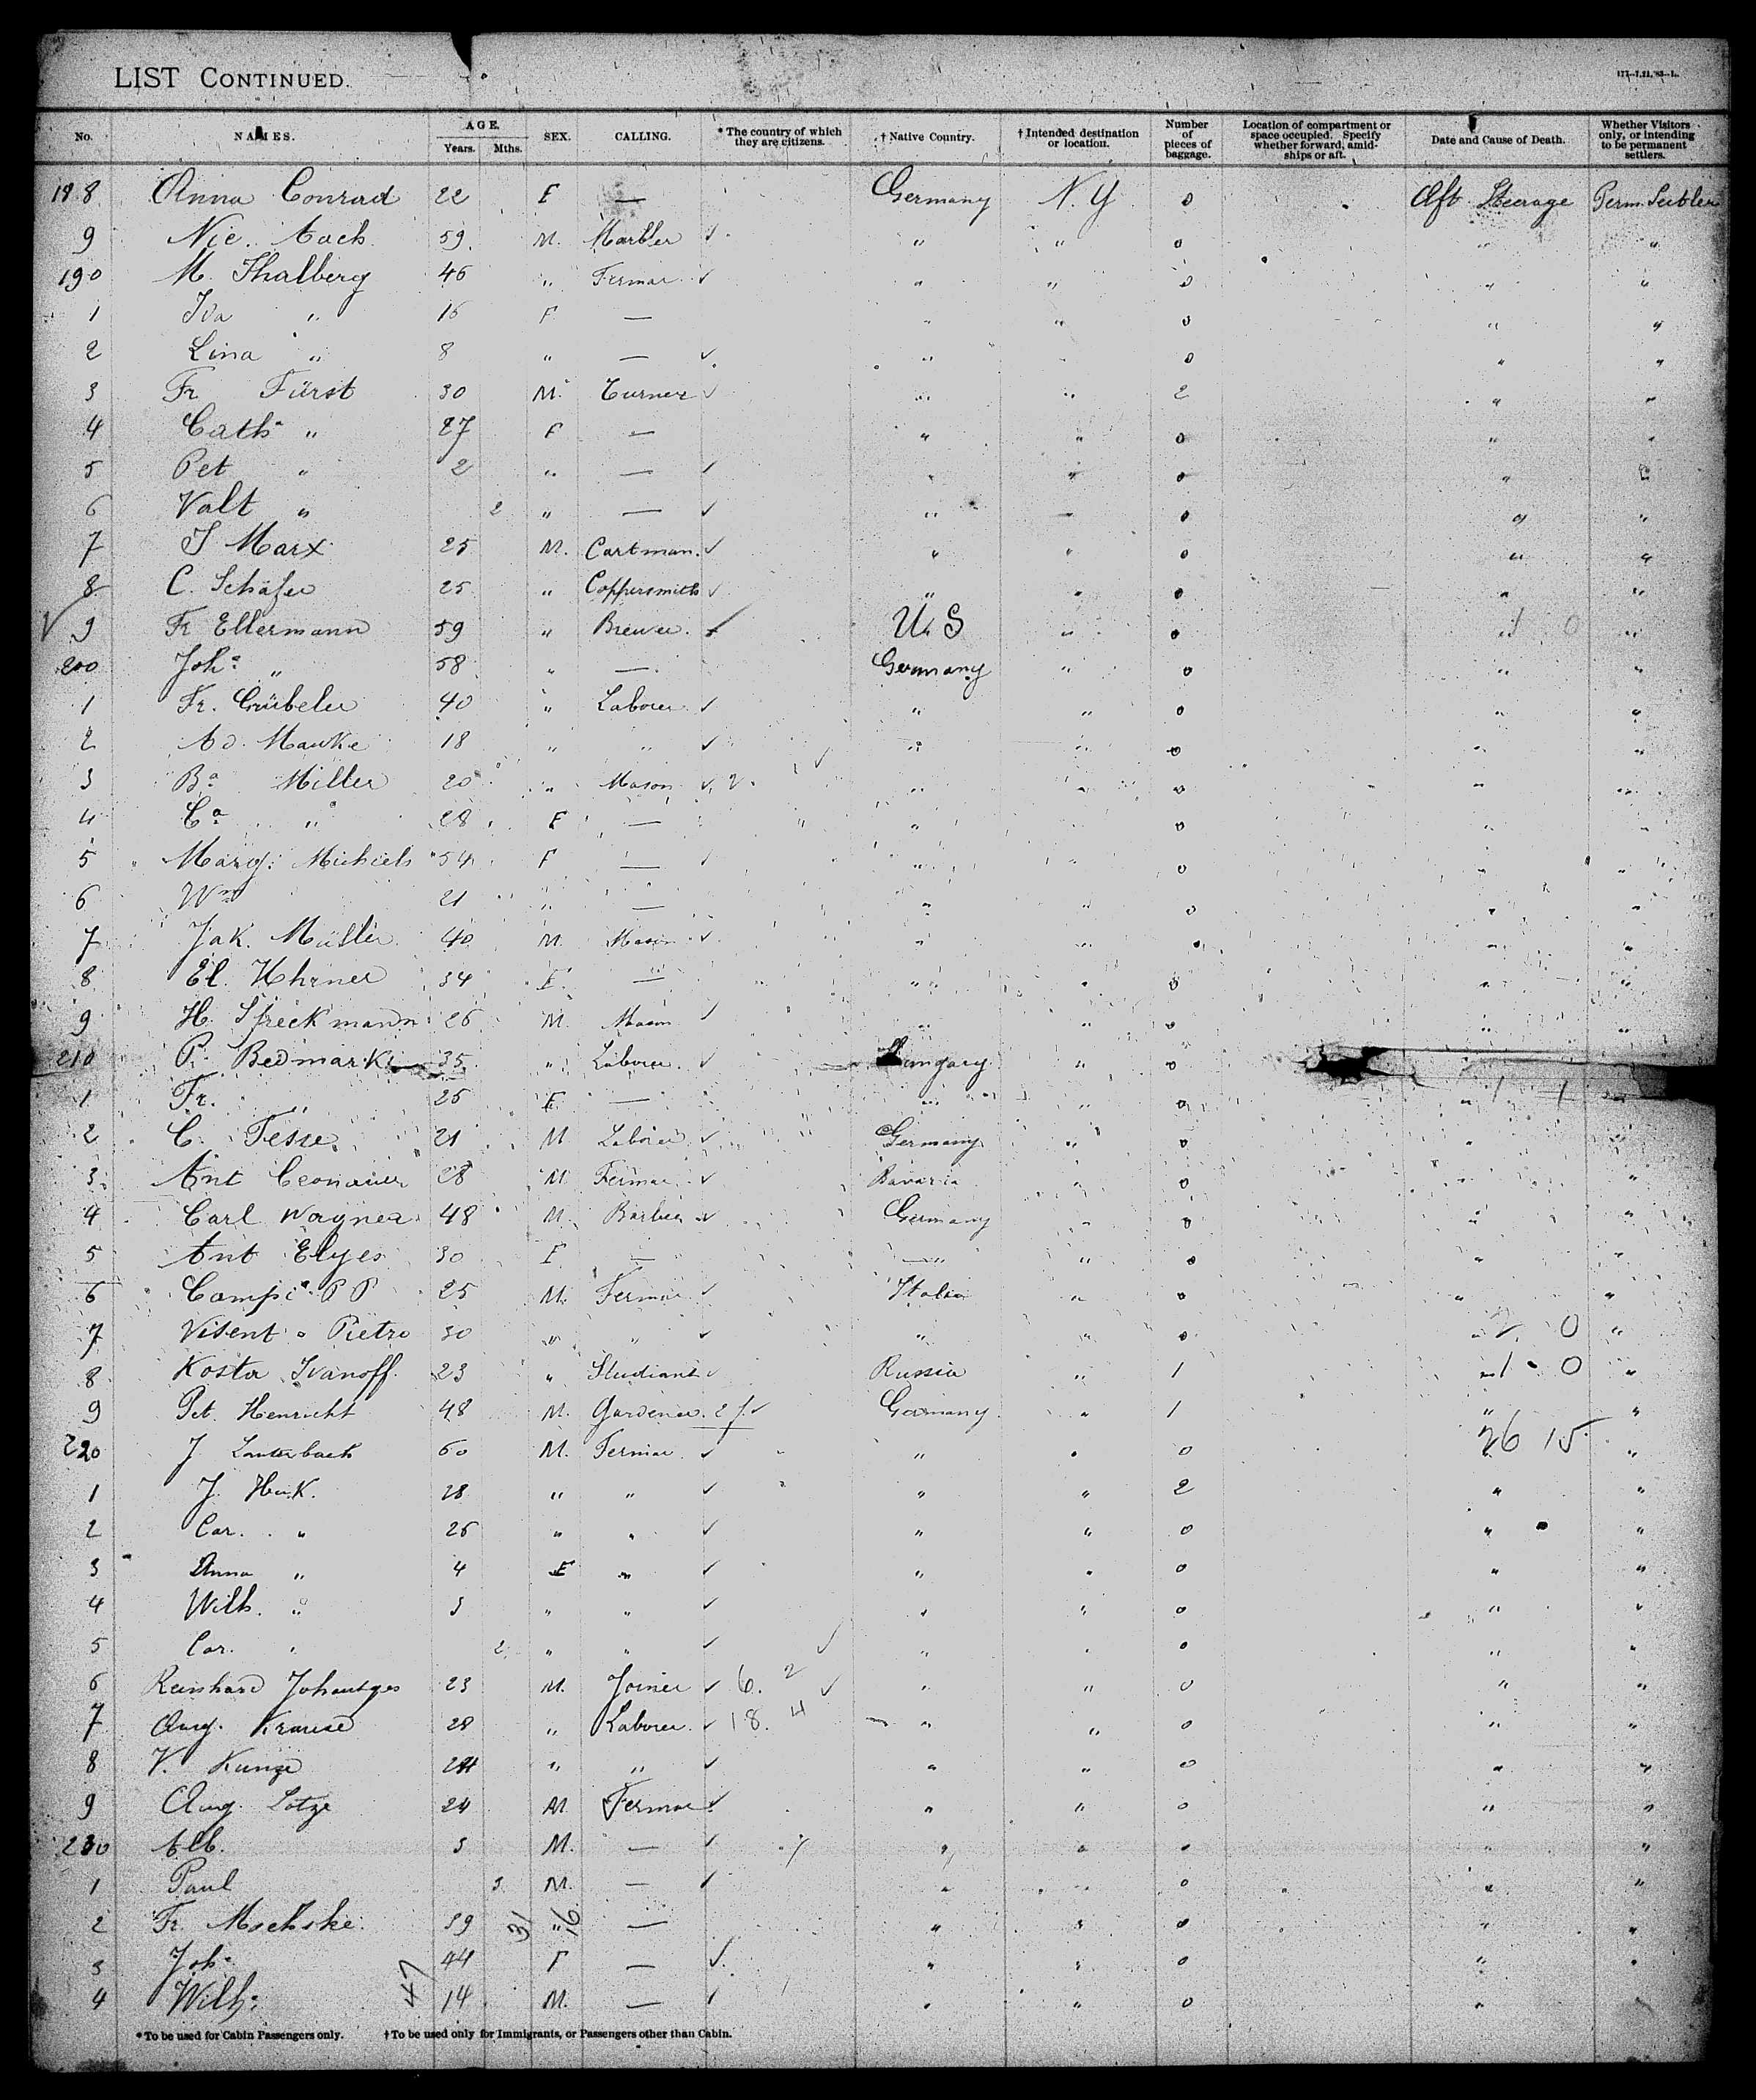 LIST CONTINUED.
No. NAMES. AGE. Years. Mths. SEX. CALLING. * The country of which they are citizens. † Native Country. † Intended destination or location. Number of pieces of baggage. Location of compartment or space occupied. Specify whether forward, amidships or aft. Date and Cause of Death. Whether Visitors only, or intending to be permanent settlers.
188 Anna Conrad 22 F — Germany N.Y 0 Aft Steerage Perm. Settler
9 Nic. 59 M. Marbler ✓ " " 0 " "
190 M. Thalberg 46 " Fermar ✓ " " 0 " "
1 Ida " 16 F — " " 0 " "
2 Lina " 8 " — ✓ " 0 " "
3 Fr Fürst 30 M. Turner ✓ " " 2 " "
4 Cath " 27 F — " " 0 " "
5 Pet " 2 " — ✓ " " 0 " "
6 Valt " 2 " — ✓ " " 0 " "
7 J Marx 25 M. Cartman ✓ " " 0 " "
8 C. Schäfer 25 " Coppersmith ✓ " " 0 " "
✓ 9 Fr Ellermann 59 " Brewer. U.S " 0 " 1 0 "
200 Joh: " 58 " — Germany " 0 " "
1 Fr. Grübeler 40 " Laborer ✓ " " 0 " "
2 Ad. Manke 18 " " ✓ " " 0 " "
3 Ba Miller 20 " Mason ✓ 2 " " 0 " "
4 Ca " 28 F — " 0 " "
5 Marg: Michiels 54 F — " " 0 " "
6 Wm 21 " — " " 0 " "
7 Jak. Müller 40 M. Mason ✓ " " 0 " "
8 El. 34 F. — " " 0 " "
9 H. Spreckmann 26 M. Mason ✓ " " 0 " "
210 P. Bedmarki 35 " Laborer ✓ Hungary " 0
1 Fr. " 26 F — " " 0 " 1 1
2 C. Tesse 21 M Laborer ✓ Germany " 0 "
3 Ant 28 M Fermar ✓ Bavaria " 0 "
4 Carl Wagner 48 M. Barbier ✓ Germany " 0 " "
5 Ant Elges 30 F — " " 0 " "
6 Campi P P 25 M. Fermar ✓ Italia " 0 " "
7 Visent Pietro 30 " " ✓ " " 0 " 2 0 "
8 Kosta Ivanoff. 23 " Studiant ✓ Russia " 1 " 1 0 "
9 Pet. Henricht 48 M. Gardener ✓ Germany " 1 " "
220 J Lauterbach 60 M. Fermar ✓ " " 0 26 15 "
1 J. Huk. 28 " " ✓ " " 2 " "
2 Car. " 26 " " ✓ " " 0 " "
3 Anna " 4 F " ✓ " " 0 " "
4 Wilh. " 3 " " ✓ " " 0 " "
5 Car. " 2 " " ✓ ✓ " " 0 " "
6 Reinhard Johantges 23 M. Joiner ✓ 6. 2 ✓ " " 0 " "
7 Aug. Krause 28 " Laborer ✓ 18. 4 " " 0 " "
8 V. Kunze 24 " " ✓ " " 0 " "
9 Aug. Lotze 24 M Fermar ✓ " " 0 " "
230 Alb. 3 M. — ✓ " " 0 " "
1 Paul 3 M. — ✓ " " 0 " "
2 Fr. Maehske 39 31 " 16 — " " 0 " "
3 Joh: 44 F — ✓ " " 0 " "
4 Wilh: 47 14 M. — ✓ " " 0 " "
*To be used for Cabin Passengers only. †To be used only for Immigrants, or Passengers other than Cabin.